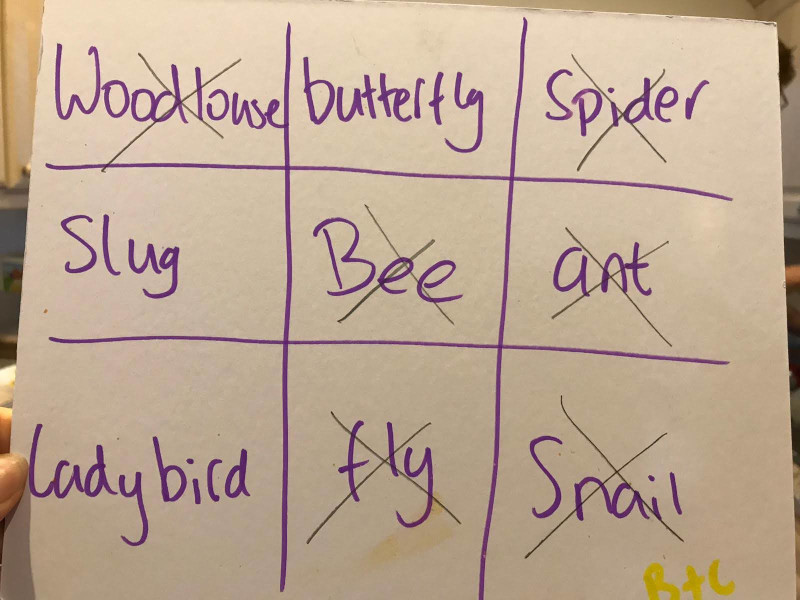 Woodlouse butterfly Spider
Slug Bee ant
Ladybird fly Snail
B+C